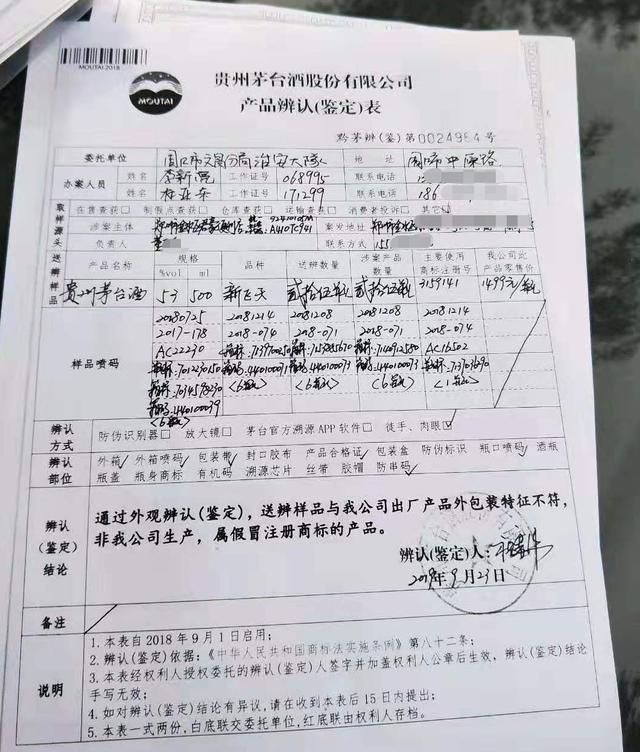 MOUTAI 2018
MOUTAI
贵州茅台酒股份有限公司
产品辨认(鉴定)表
黔茅辨(鉴)第0024984号
委托单位 周口市文昌分局治安大队 地址 周口市中原路
办案人员 姓名 李新亮 工作证号 068995 联系电话
姓名 工作证号 171299 联系电话 186
取样源头 在售查获□ 制假点查获□ 仓库查获□ 运输查获□ 消费者投诉□ 其它
涉案主体 案发地址
负责人 联系方式 155
送辨样品 产品名称 规格 %vol ml 品种 送辨数量 涉案产品数量 主要使用商标注册号 我公司此产品零售价
贵州茅台酒 53 500 新飞天 贰拾伍瓶 贰拾伍瓶 3159141 1499元/瓶
样品喷码
20180725 20181214 20181208 20181208 20181214
2017-178 2018-074 2018-071 2018-071 2018-074
AC22230 AC16502
<6瓶> <6瓶> <6瓶> <1瓶>
<6瓶>
辨认方式 防伪识别器□ 放大镜□ 茅台官方溯源APP软件□ 徒手、肉眼☑
辨认部位 外箱 外箱喷码 包装带 封口胶布 产品合格证 包装盒 防伪标识 瓶口喷码 酒瓶
瓶盖 瓶身商标 有机码 溯源芯片 丝带 胶帽 防串码
辨认(鉴定)结论
通过外观辨认(鉴定),送辨样品与我公司出厂产品外包装特征不符,
非我公司生产,属假冒注册商标的产品。
辨认(鉴定)人:
2019年9月23日
备注
说明
1. 本表自2018年9月1日启用;
2. 辨认(鉴定)依据:《中华人民共和国商标法实施条例》第八十二条;
3. 本表经权利人授权委托的辨认(鉴定)人签字并加盖权利人公章后生效,辨认(鉴定)结论
手写无效;
4. 如对辨认(鉴定)结论有异议,请在收到本表后15日内提出;
5. 本表一式两份,白底联交委托单位,红底联由权利人存档。